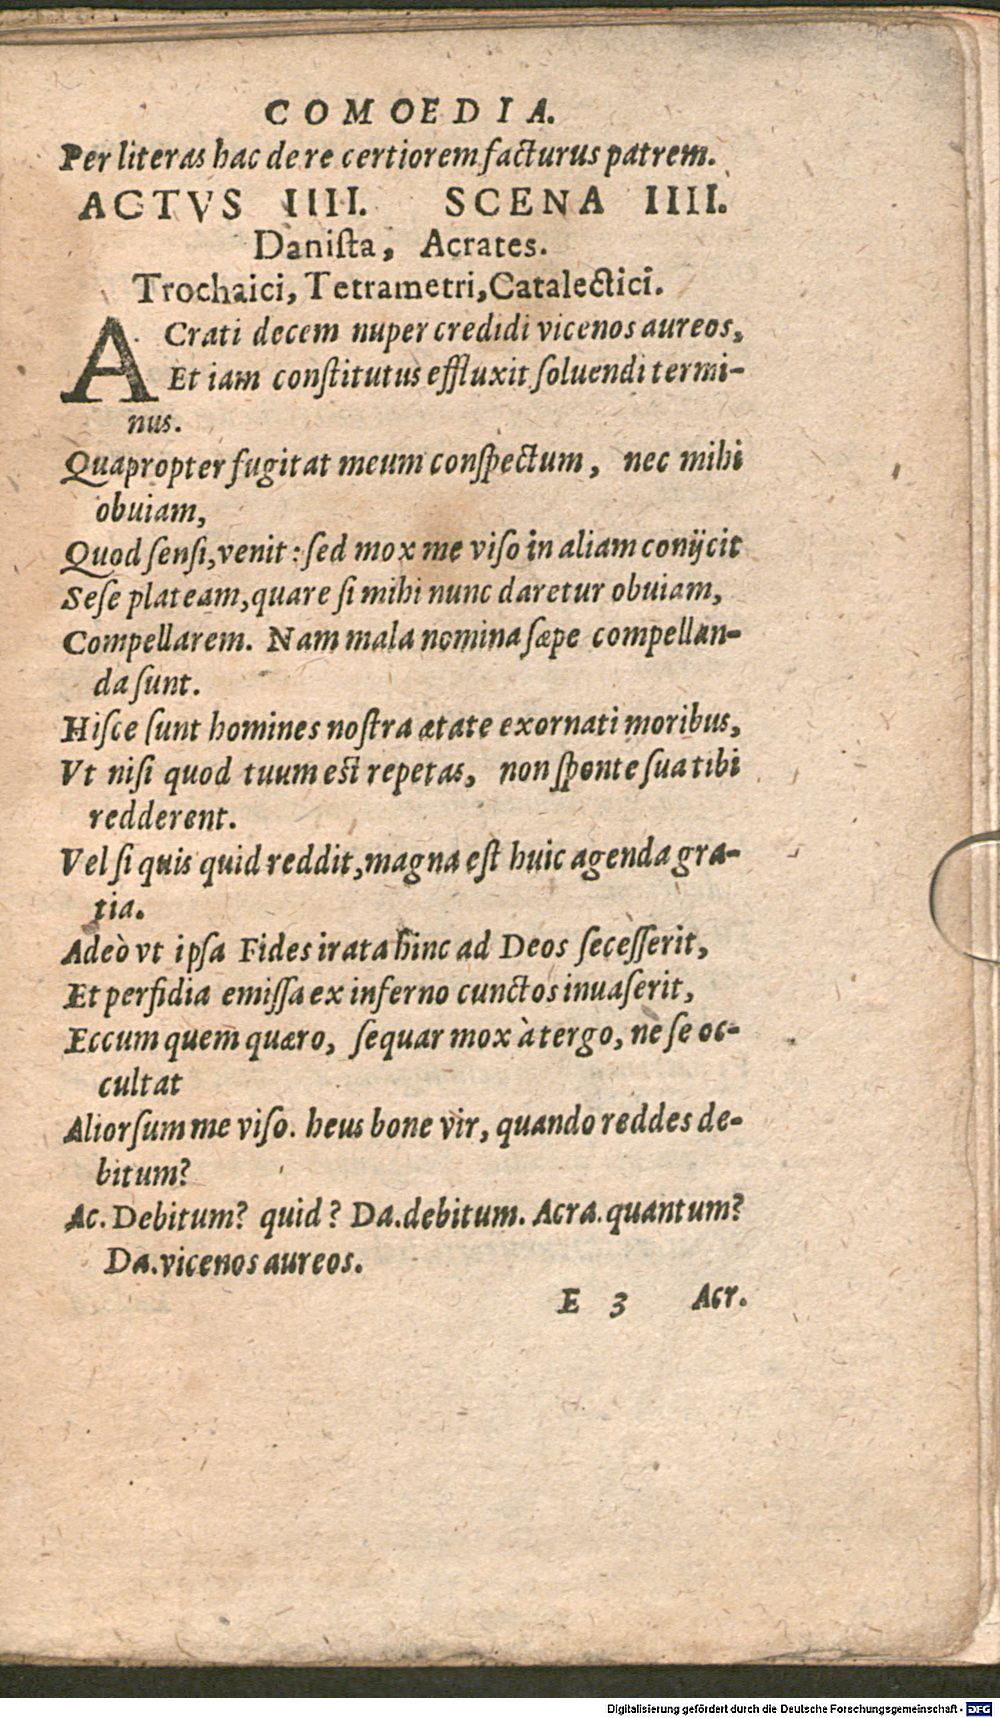 COMOEDIA.
Per literas hac de re certiorem facturus patrem.
ACTVS IIII. SCENA IIII.
Daniſta, Acrates.
Trochaici, Tetrametri, Catalectici.
ACrati decem nuper credidi vicenos aureos,
Et iam conſtitutus effluxit ſoluendi termi-
nus.
Quapropter fugitat meum conſpectum, nec mihi
obuiam,
Quod ſenſi, venit: ſed mox me viſo in aliam conijcit
Seſe plateam, quare ſi mihi nunc daretur obuiam,
Compellarem. Nam mala nomina ſæpe compellan-
da ſunt.
Hiſce ſunt homines noſtra ætate exornati moribus,
Vt niſi quod tuum eſt repetas, non ſponte ſua tibi
redderent.
Vel ſi quis quid reddit, magna eſt huic agenda gra-
tia.
Adeò vt ipſa Fides irata hinc ad Deos ſeceſſerit,
Et perfidia emiſſa ex inferno cunctos inuaſerit,
Eccum quem quæro, ſequar mox à tergo, ne ſe oc-
cultat
Aliorſum me viſo. heus bone vir, quando reddes de-
bitum?
Ac. Debitum? quid? Da. debitum. Acra. quantum?
Da. vicenos aureos.
E 3 Acr.
Digitalisierung gefördert durch die Deutsche Forschungsgemeinschaft - DFG